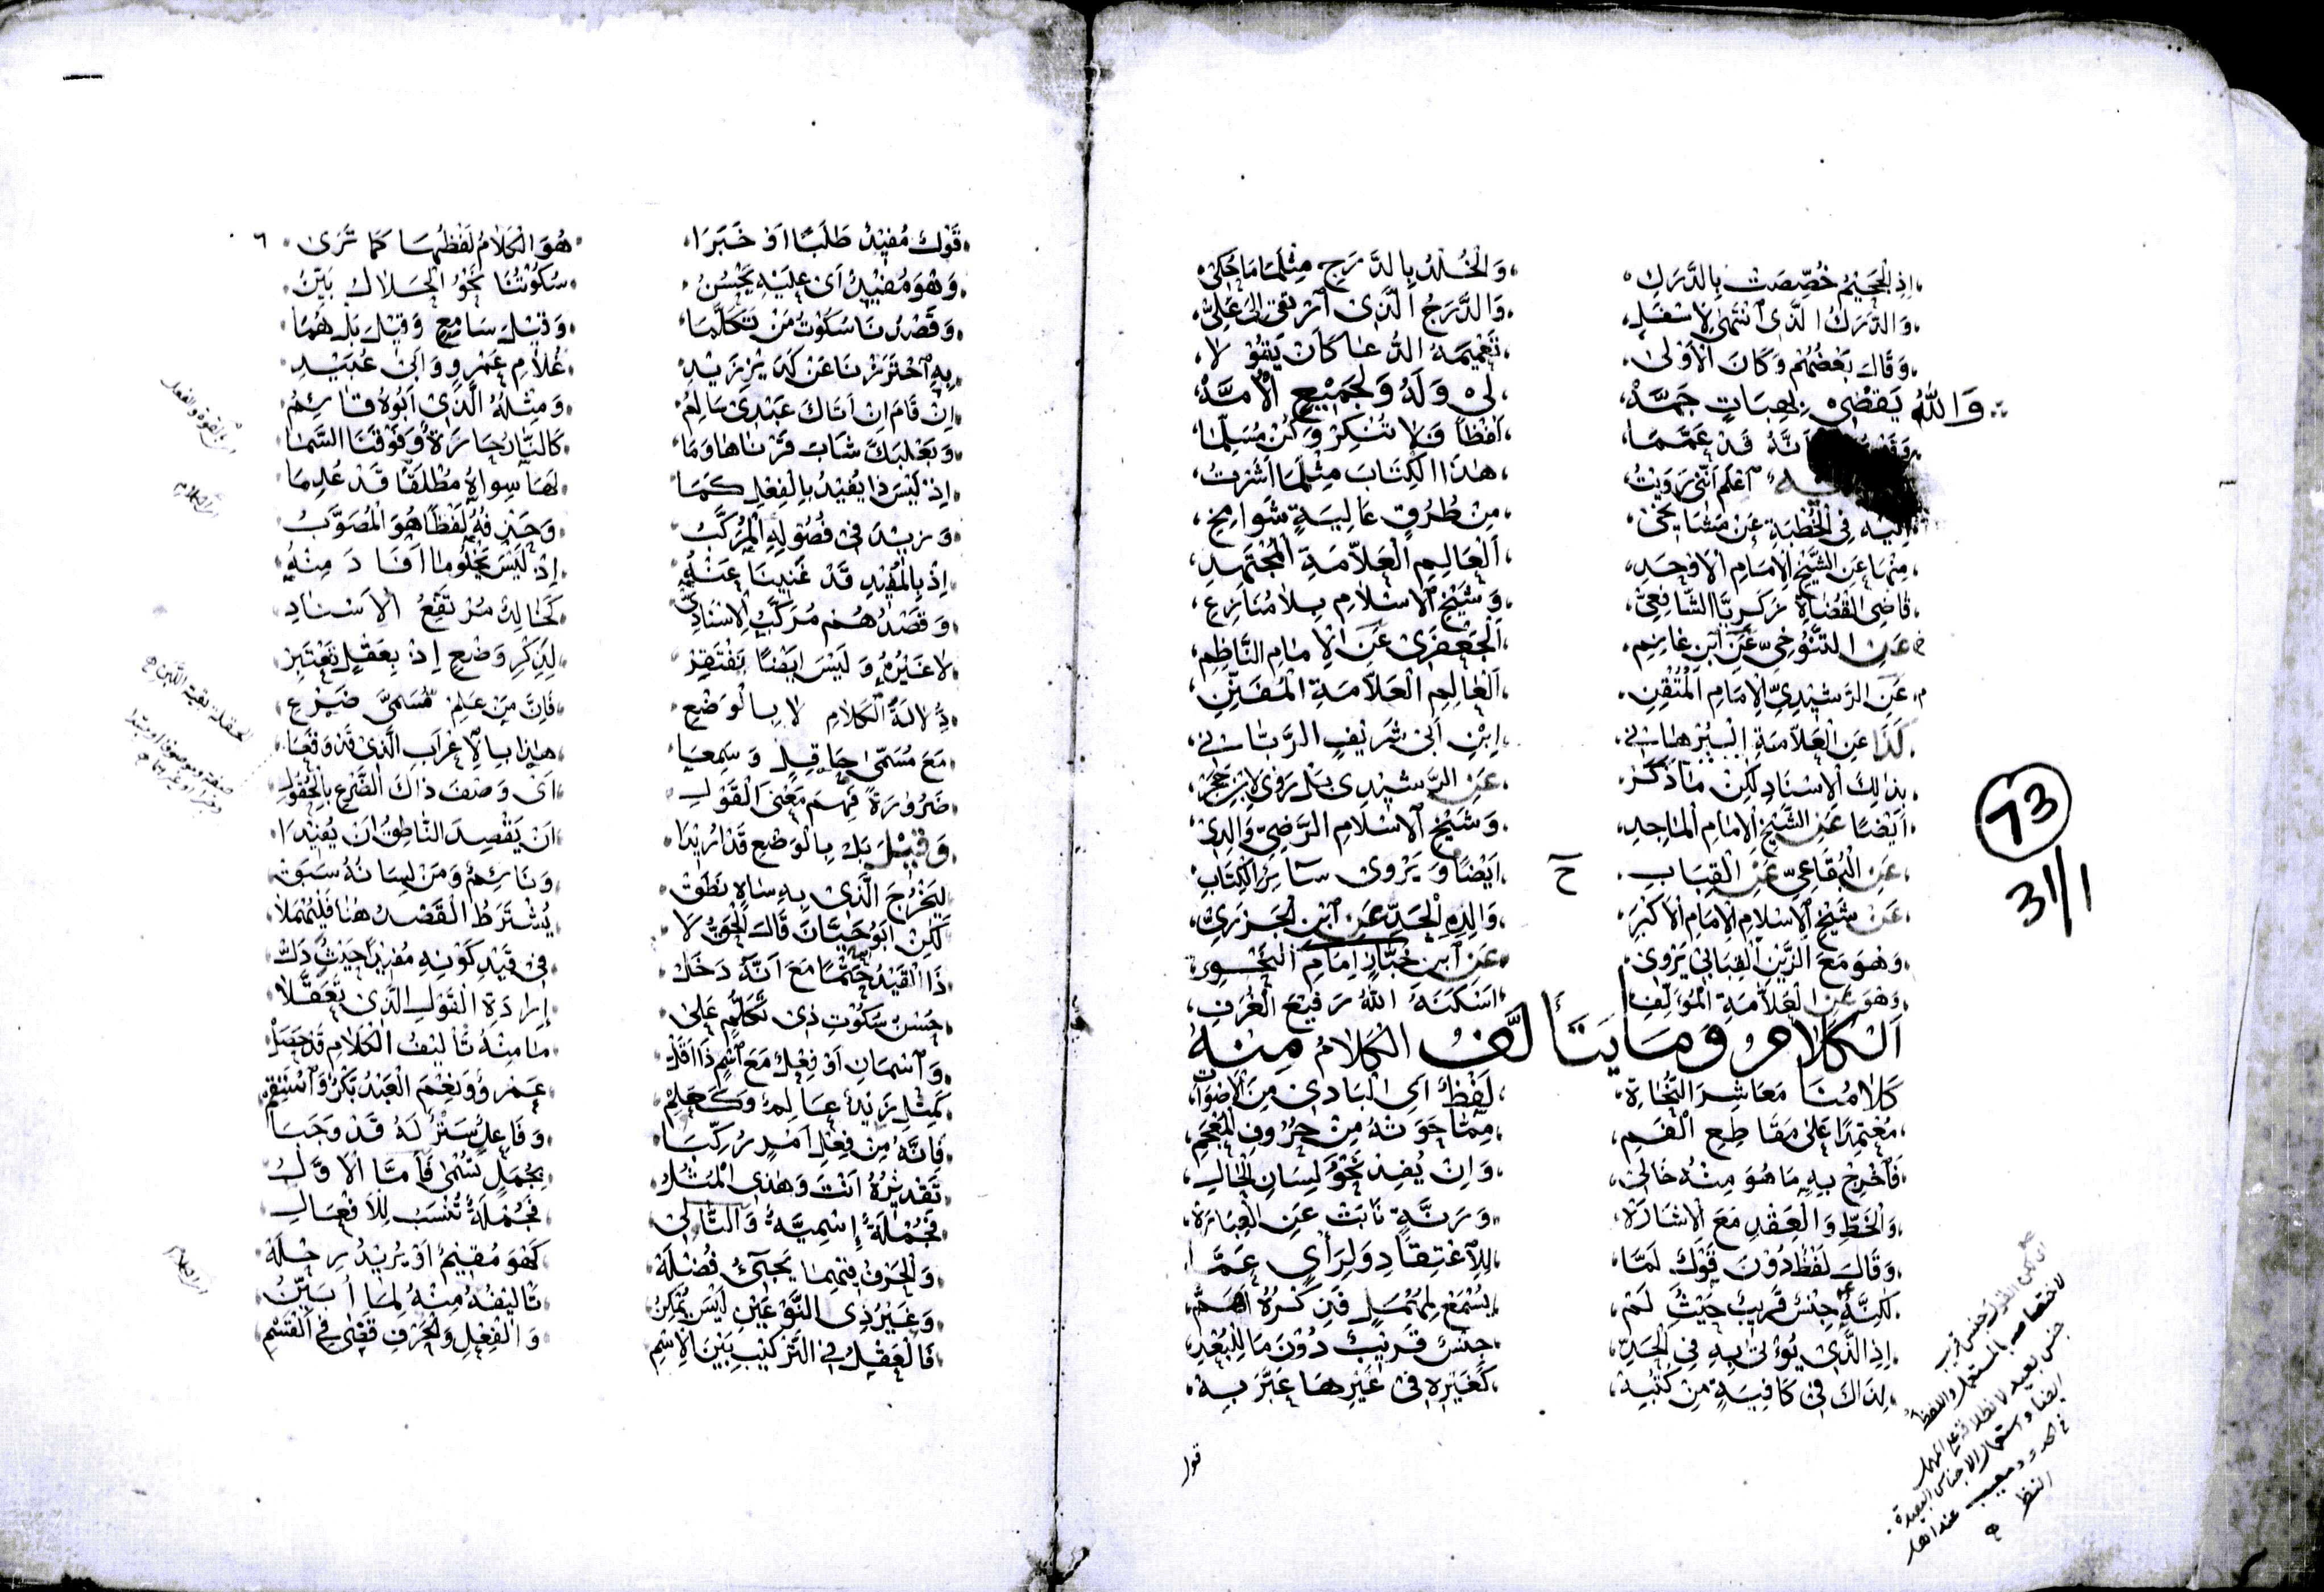 إِذِ الْجَحِيْمُ خُصِّصَتْ بِالدَّرَكِ وَالْخُلْدُ بِالدَّرَجِ مِثْلَمَا حُكِيْ
وَالدَّرَكُ الَّذِى انْتَمَى لِاَسْفَلِ وَالدَّرَجُ الَّذِى ارْتَقَى اِلَى عَلِيْ
وَقَالَ بَعْضُهُمْ وَكَانَ الْاَوْلَى تَعْمِيْمَهُ الدُّعَا كَاَنْ يَقُوْلَا
وَاللهُ يَقْضِىْ بِهِبَاتٍ جَمَّهْ لِىْ وَلَهُ وَلِجَمِيْعِ الْاُمَّهْ
اَنَّهُ قَدْ عَمَّمَا لَفْظًا فَلَا تُنْكِرْ وَكُنْ مُسَلِّمَا
اعْلَمْ اَنَّنِىْ رَوَيْتُ هٰذَا الْكِتَابَ مِثْلَمَا اَشَرْتُ
اِلَيْهِ فِى الْخُطْبَةِ عَنْ مَشَايِخِىْ مِنْ طُرُقٍ عَالِيَةٍ شَوَامِخِ
مِنْهَا عَنِ الشَّيْخِ الْاِمَامِ الْاَوْحَدِ اَلْعَالِمِ الْعَلَّامَةِ الْمُجْتَهِدِ
قَاضِى الْقُضَاةِ زَكَرِيَّا الشَّافِعِىْ وَشَيْخِ الْاِسْلَامِ بِلَا مُنَازِعِ
عَنِ التَّنُوْخِىِّ عَنِ ابْنِ غَانِمِ الْجَعْفَرِىْ عَنِ الْاِمَامِ النَّاظِمِ
عَنِ الرَّشِيْدِىِّ الْاِمَامِ الْمُتْقِنِ اَلْعَالِمِ الْعَلَّامَةِ الْمُفَنِّنِ
كَذَا عَنِ الْعَلَّامَةِ الْبُرْهَانِىْ اِبْنِ اَبِىْ شَرِيْفٍ الرَّبَّانِىْ
بِذٰلِكَ الْاِسْنَادِ لٰكِنْ مَا ذَكَرْ عَنِ الرَّشِيْدِىْ بَلْ رَوٰى لِابْنِ حَجَرْ
اَيْضًا عَنِ الشَّيْخِ الْاِمَامِ الْمَاجِدِ وَشَيْخِ الْاِسْلَامِ الرَّضِىِّ وَالِدِىْ
عَنِ الْبِقَاعِىِّ عَنِ الْقِبَابِ اَيْضًا وَيَرْوِى سَائِرَ الْكِتَابِ
عَنْ شَيْخِ الْاِسْلَامِ الْاِمَامِ الْاَكْبَرِ وَالِدِهِ الْجَدِّ عَنِ ابْنِ الْجَزَرِىْ
وَهُوَ مَعَ الزَّيْنِ الْقِبَابِىْ يَرْوِى عَنِ ابْنِ خَبَّازٍ اِمَامِ النَّحْوِ
وَهُوَ عَنِ الْعَلَّامَةِ الْمُؤَلِّفِ اَسْكَنَهُ اللهُ رَفِيْعَ الْغُرَفِ
اَلْكَلَامُ وَمَا يَتَأَلَّفُ الْكَلَامُ مِنْهُ
كَلَامُنَا مَعَاشِرَ النُّحَاةِ لَفْظٌ اَىِ الْبَادِى مِنَ الْاَصْوَاتِ
مُعْتَمِدًا عَلٰى مَقَاطِعِ الْفَمِ مِمَّا حَوَتْهُ مِنْ حُرُوْفِ الْمُعْجَمِ
فَاَخْرِجْ بِهِ مَا هُوَ مِنْهُ خَالِىْ وَاِنْ يُفِدْ نَحْوُ لِسَانِ الْحَالِ
وَالْخَطِّ وَالْعَقْدِ مَعَ الْاِشَارَةْ وَرَنَّةٍ نَابَتْ عَنِ الْعِبَارَةْ
وَقَالَ لَفْظٌ دُوْنَ قَوْلٌ لَمَّا لِلِاعْتِقَادِ وَلِرَأْىٍ عَمَّا
لٰكِنَّهُ جِنْسٌ قَرِيْبٌ حَيْثُ لَمْ يُسْمَعْ لِمُهْمَلٍ فَذِكْرُهُ اَهَمْ
اِذِ الَّذِى يُوْتٰى بِهِ فِى الْحَدِّ جِنْسٌ قَرِيْبٌ دُوْنَ مَا لِلْبُعْدِ
لِذَاكَ فِىْ كَافِيَةٍ مِنْ كُتْبِهْ كَغَيْرِهِ فِىْ غَيْرِهَا عَبَّرَ بِهْ
قول
ح
73
31/1
جنس قريب
لاختصاصه بالمستعمل واللفظ
جنس بعيد لانطلاقه على المهمل
ايضا واستعمال الاجناس البعيدة
في الحدود معيب عند اهل
النظر
٦
قَوْلٌ مُفِيْدٌ طَلَبًا اَوْ خَبَرَا هُوَ الْكَلَامُ لَفْظُهَا كَمَا تَرٰى
وَهْوَ مُفِيْدٌ اَىْ عَلَيْهِ يَحْسُنُ سُكُوْتُنَا نَحْوُ الْحَلَالُ بَيِّنُ
وَقَصْدُنَا سُكُوْتُ مَنْ تَكَلَّمَا وَقِيْلَ سَامِعٍ وَقِيْلَ بَلْ هُمَا
بِهِ احْتَرَزْنَا عَنْ كَدَيْرِ زَيْدِ غُلَامِ عَمْرٍو وَاَبِىْ عُبَيْدِ
اِنْ قَامَ اِنْ اَتَاكَ عَبْدِىْ سَالِمُ وَمِثْلُهُ الَّذِىْ اَبُوْهُ قَائِمُ
وَبَعْلَبَكَّ شَابَ قَرْنَاهَا وَمَا كَالنَّارُ حَارَّةٌ وَفَوْقَنَا السَّمَا
اِذْ لَيْسَ ذَا يُفِيْدُ بِالْفِعْلِ كَمَا لَهَا سِوَاهُ مُطْلَقًا قَدْ عُلِمَا
وَزِيْدَ فِىْ فُصُوْلِهِ الْمُرَكَّبُ وَحَذْفُهُ لَفْظًا هُوَ الْمُصَوَّبُ
اِذْ بِالْمُفِيْدِ قَدْ غَنِيْنَا عَنْهُ اِذْ لَيْسَ مَجْلُوْمًا اَفَادَ مِنْهُ
وَقَصْدُهُمْ مُرَكَّبُ الْاِسْنَادِ كَخَالِدٌ مُرْتَفِعُ الْاِسْنَادِ
لَا غَيْرُهُ وَلَيْسَ اَيْضًا يَفْتَقِرْ لِذِكْرِ وَضْعٍ اِذْ بِعَقْلٍ تُعْتَبَرْ
دِلَالَةُ الْكَلَامِ لَا بِالْوَضْعِ فَاِنَّ مَنْ عَلِمَ مُسَمَّىْ ضَرْعِ
مَعَ مُسَمّٰى حَافِلٍ وَسَمِعَا هٰذَا بِالْاِعْرَابِ الَّذِىْ قَدْ وَقَعَا
ضَرُوْرَةً فَهِمَ مَعْنَى الْقَوْلِ اَىْ وَصْفَ ذَاكَ الضَّرْعِ بِالْحُفُوْلِ
وَقِيْلَ بَلْ بِالْوَضْعِ قَدْ اُرِيْدَا اَنْ يَقْصِدَ النَّاطِقُ اَنْ يُفِيْدَا
لِيَخْرُجَ الَّذِىْ بِهِ سَاهٍ نَطَقْ وَنَائِمٌ وَمَنْ لِسَانُهُ سَبَقْ
لٰكِنْ اَبُوْ حَيَّانَ قَالَ الْحَقُّ لَا يُشْتَرَطُ الْقَصْدُ هُنَا فَلْيُهْمَلَا
ذَا الْقَيْدُ حَتْمًا مَعَ اَنَّهُ دَخَلْ فِىْ قَيْدِ كَوْنِهِ مُفِيْدًا حَيْثُ دَلْ
حُسْنُ سُكُوْتِ ذِىْ تَكَلُّمٍ عَلٰى اِرَادَةِ الْقَوْلِ الَّذِىْ تَعَقَّلَا
وَاسْمَانِ اَوْ فِعْلٌ مَعَ اسْمٍ ذَا اَقَلْ مَا مِنْهُ تَأْلِيْفُ الْكَلَامِ قَدْ حَصَلْ
كَمِثْلِ زَيْدٌ عَالِمٌ وَكَعَلِمْ عَمْرٌو وَنِعْمَ الْعَبْدُ بَكْرٌ وَاسْتَقِمْ
فَاِنَّهُ مِنْ فِعْلِ اَمْرٍ رُكِّبَا وَفَاعِلٍ سَتْرٌ لَهُ قَدْ وَجَبَا
تَقْدِيْرُهُ اَنْتَ وَهٰذِى الْمُثُلُ بِجُمَلٍ تُسْمٰى فَاَمَّا الْاَوَّلُ
فَجُمْلَةٌ اِسْمِيَّةٌ وَالتَّالِىْ فَجُمْلَةٌ تُنْسَبُ لِلْاَفْعَالِ
وَالْحَرْفُ فِيْهِمَا يَجِىْءُ فُضْلَةْ كَهْوَ مُقِيْمٌ اَوْ يُرِيْدُ رِحْلَةْ
وَغَيْرُ ذِى النَّوْعَيْنِ لَيْسَ يُمْكِنُ تَأْلِيْفُهُ مِنْهُ لِمَا اُبَيِّنُ
فَالْعَقْلُ فِى التَّرْكِيْبِ بَيْنَ الْاِسْمِ وَالْفِعْلِ وَالْحَرْفِ قَضٰى فِى الْقَسْمِ